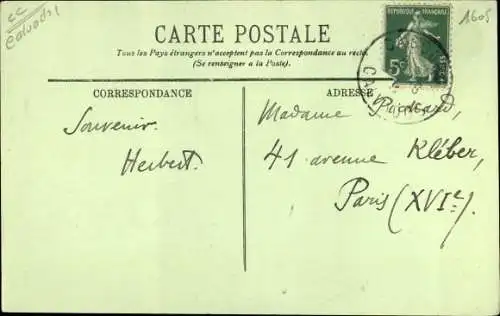 CC
Calvados
1605
CARTE POSTALE
Tous les Pays étrangers n'acceptent pas la Correspondance au recto
(Se renseigner à la Poste).
REPUBLIQUE FRANÇAISE
5c
POSTES
CORRESPONDANCE
ADRESSE
Souvenir.
Herbert.
Madame
41 avenue Kléber,
Paris (XVIe).